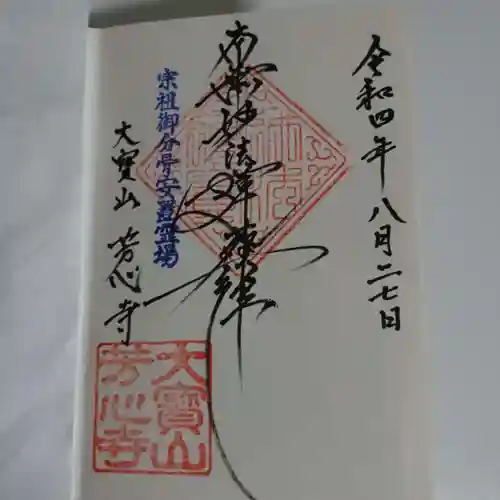 令和四年八月二七日
南無妙法蓮華経
宗祖御分骨安置霊場
大寶山 芳心寺
大寶山
芳心寺